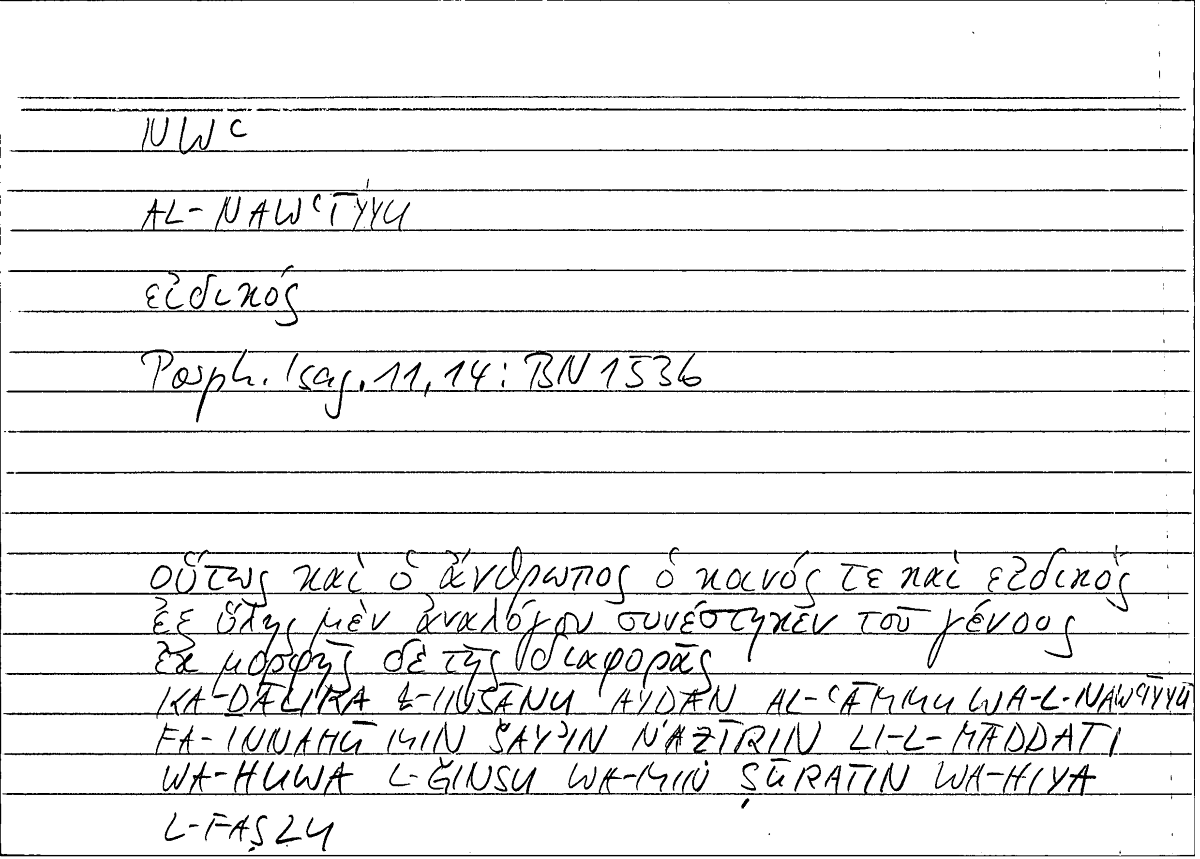 NWʿ
AL-NAWʿĪYYU
εἰδικός
Porph. Isag. 11,14: BN 1536
οὕτως καὶ ὁ ἄνθρωπος ὁ κοινός τε καὶ εἰδικός
ἐξ ὕλης μὲν ἀναλόγου συνέστηκεν τοῦ γένους
ἐκ μορφῆς δὲ τῆς διαφορᾶς
KA-ḎĀLIKA L-INSĀNU AYḌAN AL-ʿĀMMU WA-L-NAWʿĪYYU
FA-INNAHŪ MIN ŠAYʾIN NAẒĪRIN LI-L-MĀDDATI
WA-HUWA L-ǦINSU WA-MIN ṢŪRATIN WA-HIYA
L-FAṢLU